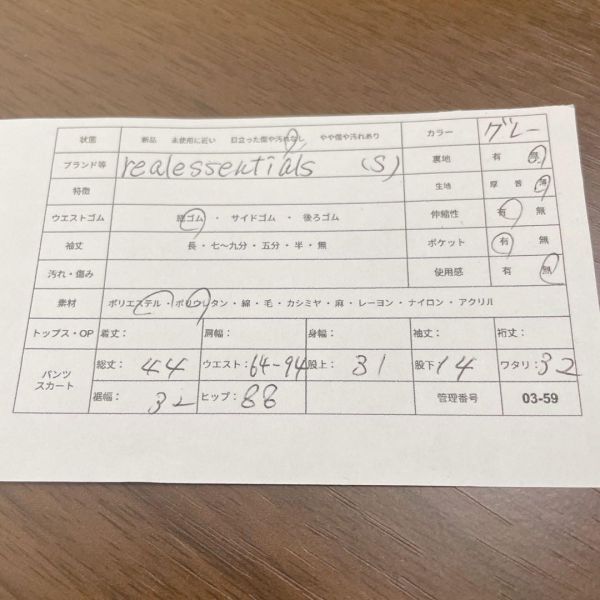 状態 新品 未使用に近い 目立った傷や汚れなし やや傷や汚れあり カラー グレー
ブランド等 realessentials (S) 裏地 有 無
特徴 生地 厚 普 薄
ウエストゴム 総ゴム ・ サイドゴム ・ 後ろゴム 伸縮性 有 無
袖丈 長 ・ 七〜九分 ・ 五分 ・ 半 ・ 無 ポケット 有 無
汚れ・傷み 使用感 有 無
素材 ポリエステル ・ ポリウレタン ・ 綿 ・ 毛 ・ カシミヤ ・ 麻 ・ レーヨン ・ ナイロン ・ アクリル
トップス・OP 着丈: 肩幅: 身幅: 袖丈: 裄丈:
パンツ スカート 総丈: 44 ウエスト: 64-94 股上: 31 股下 14 ワタリ: 32
裾幅: 32 ヒップ: 88 管理番号 03-59